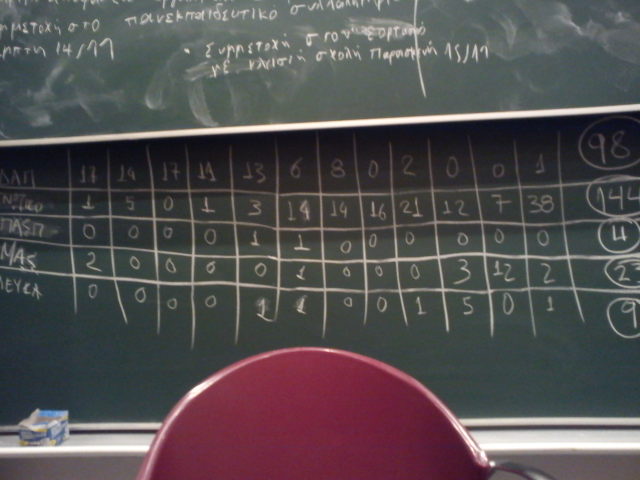 μμετοχή στο πανεκπαιδευτικό συλλαλητήριο
μπτη 14/11
• Συμμετοχή στον εορτασμό
με κλειστή σχολή Παρασκευή 15/11
ΔΑΠ 17 14 17 11 13 6 8 0 2 0 0 1 98
1 5 0 1 3 14 14 16 21 12 7 38 144
ΠΑΣΠ 0 0 0 0 1 1 0 0 0 0 0 0 4
ΜΑΣ 2 0 0 0 0 1 0 0 0 3 12 2 23
0 0 0 0 1 1 0 0 1 5 0 1 9